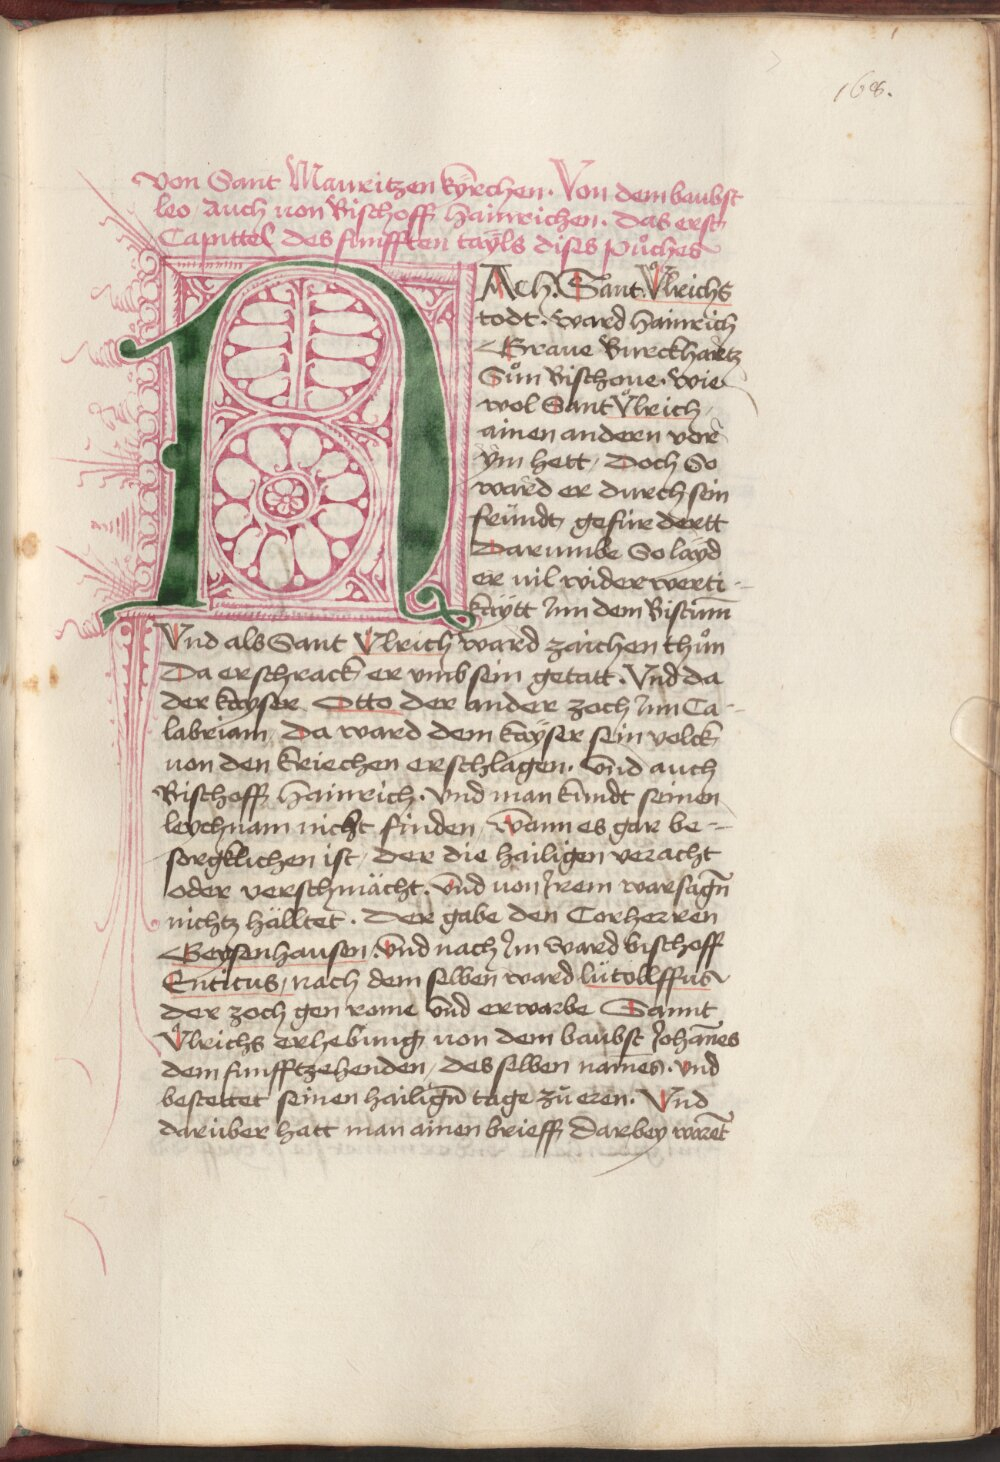 168.
von Sant Mauritzen kyrchen. Von dem baubst
leo Auch uon Bischoff Hainrichen. Das erst
Capittel des funfften tayls dises puͦches
NAch. Sant Vͦlrichs
todt. ward Hainrich
Graue Burckhartz
Suͦn Bischoue. wie
wol Sant Vͦlrich
ainen andern vor
ym hett, Doch So
ward er durch sein
fründt gefürdertt
Darumbe So layd
er uil widerwerti-
kaytt Jnn dem Bistum̄
Vnd als Sant Vͦlrich ward zaichen thuͦn
Da erschrack er vmb sein getatt. Vnd da
der kayser Otto der ander zoch Jnn Ca-
labriam, Da ward dem kayser sein volck
uon den kriechen erschlagen. Vnd auch
Bischoff Hainrich. Vnd man kundt seinen
leychnam nicht finden, wann es gar be-
sorgklichen ist, der die hailigen veracht
oder verschmächt. Vnd uon Jrem warsagn̄
nichtz hälltet. Der gabe den Corherren
Geysenhausen. Vnd nach Jm ward bischoff
Enticus, nach dem selben ward lutollffus
der zoch gen rome Vnd erwarbe Sannt
Vͦlrichs erhebung uon dem baubst Johan̄es
dem funfftzehenden, des selben namēs. Vnd
bestettet seinen hailign̄ tage zu eren. Vnd
darüber hatt man ainen brieff Darbey waret̄